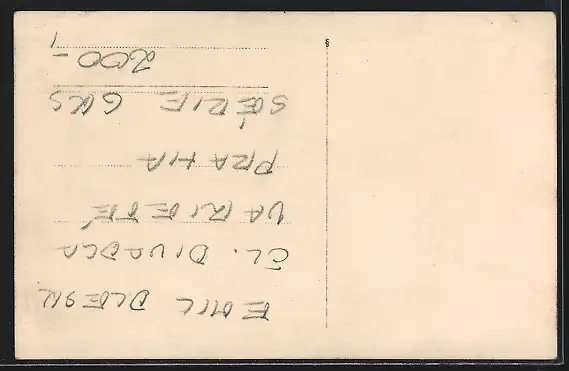 EMIL DLESK
ČL. DIVADLA
VARIETÉ
PRAHA
SÉRIE 6KS
200-